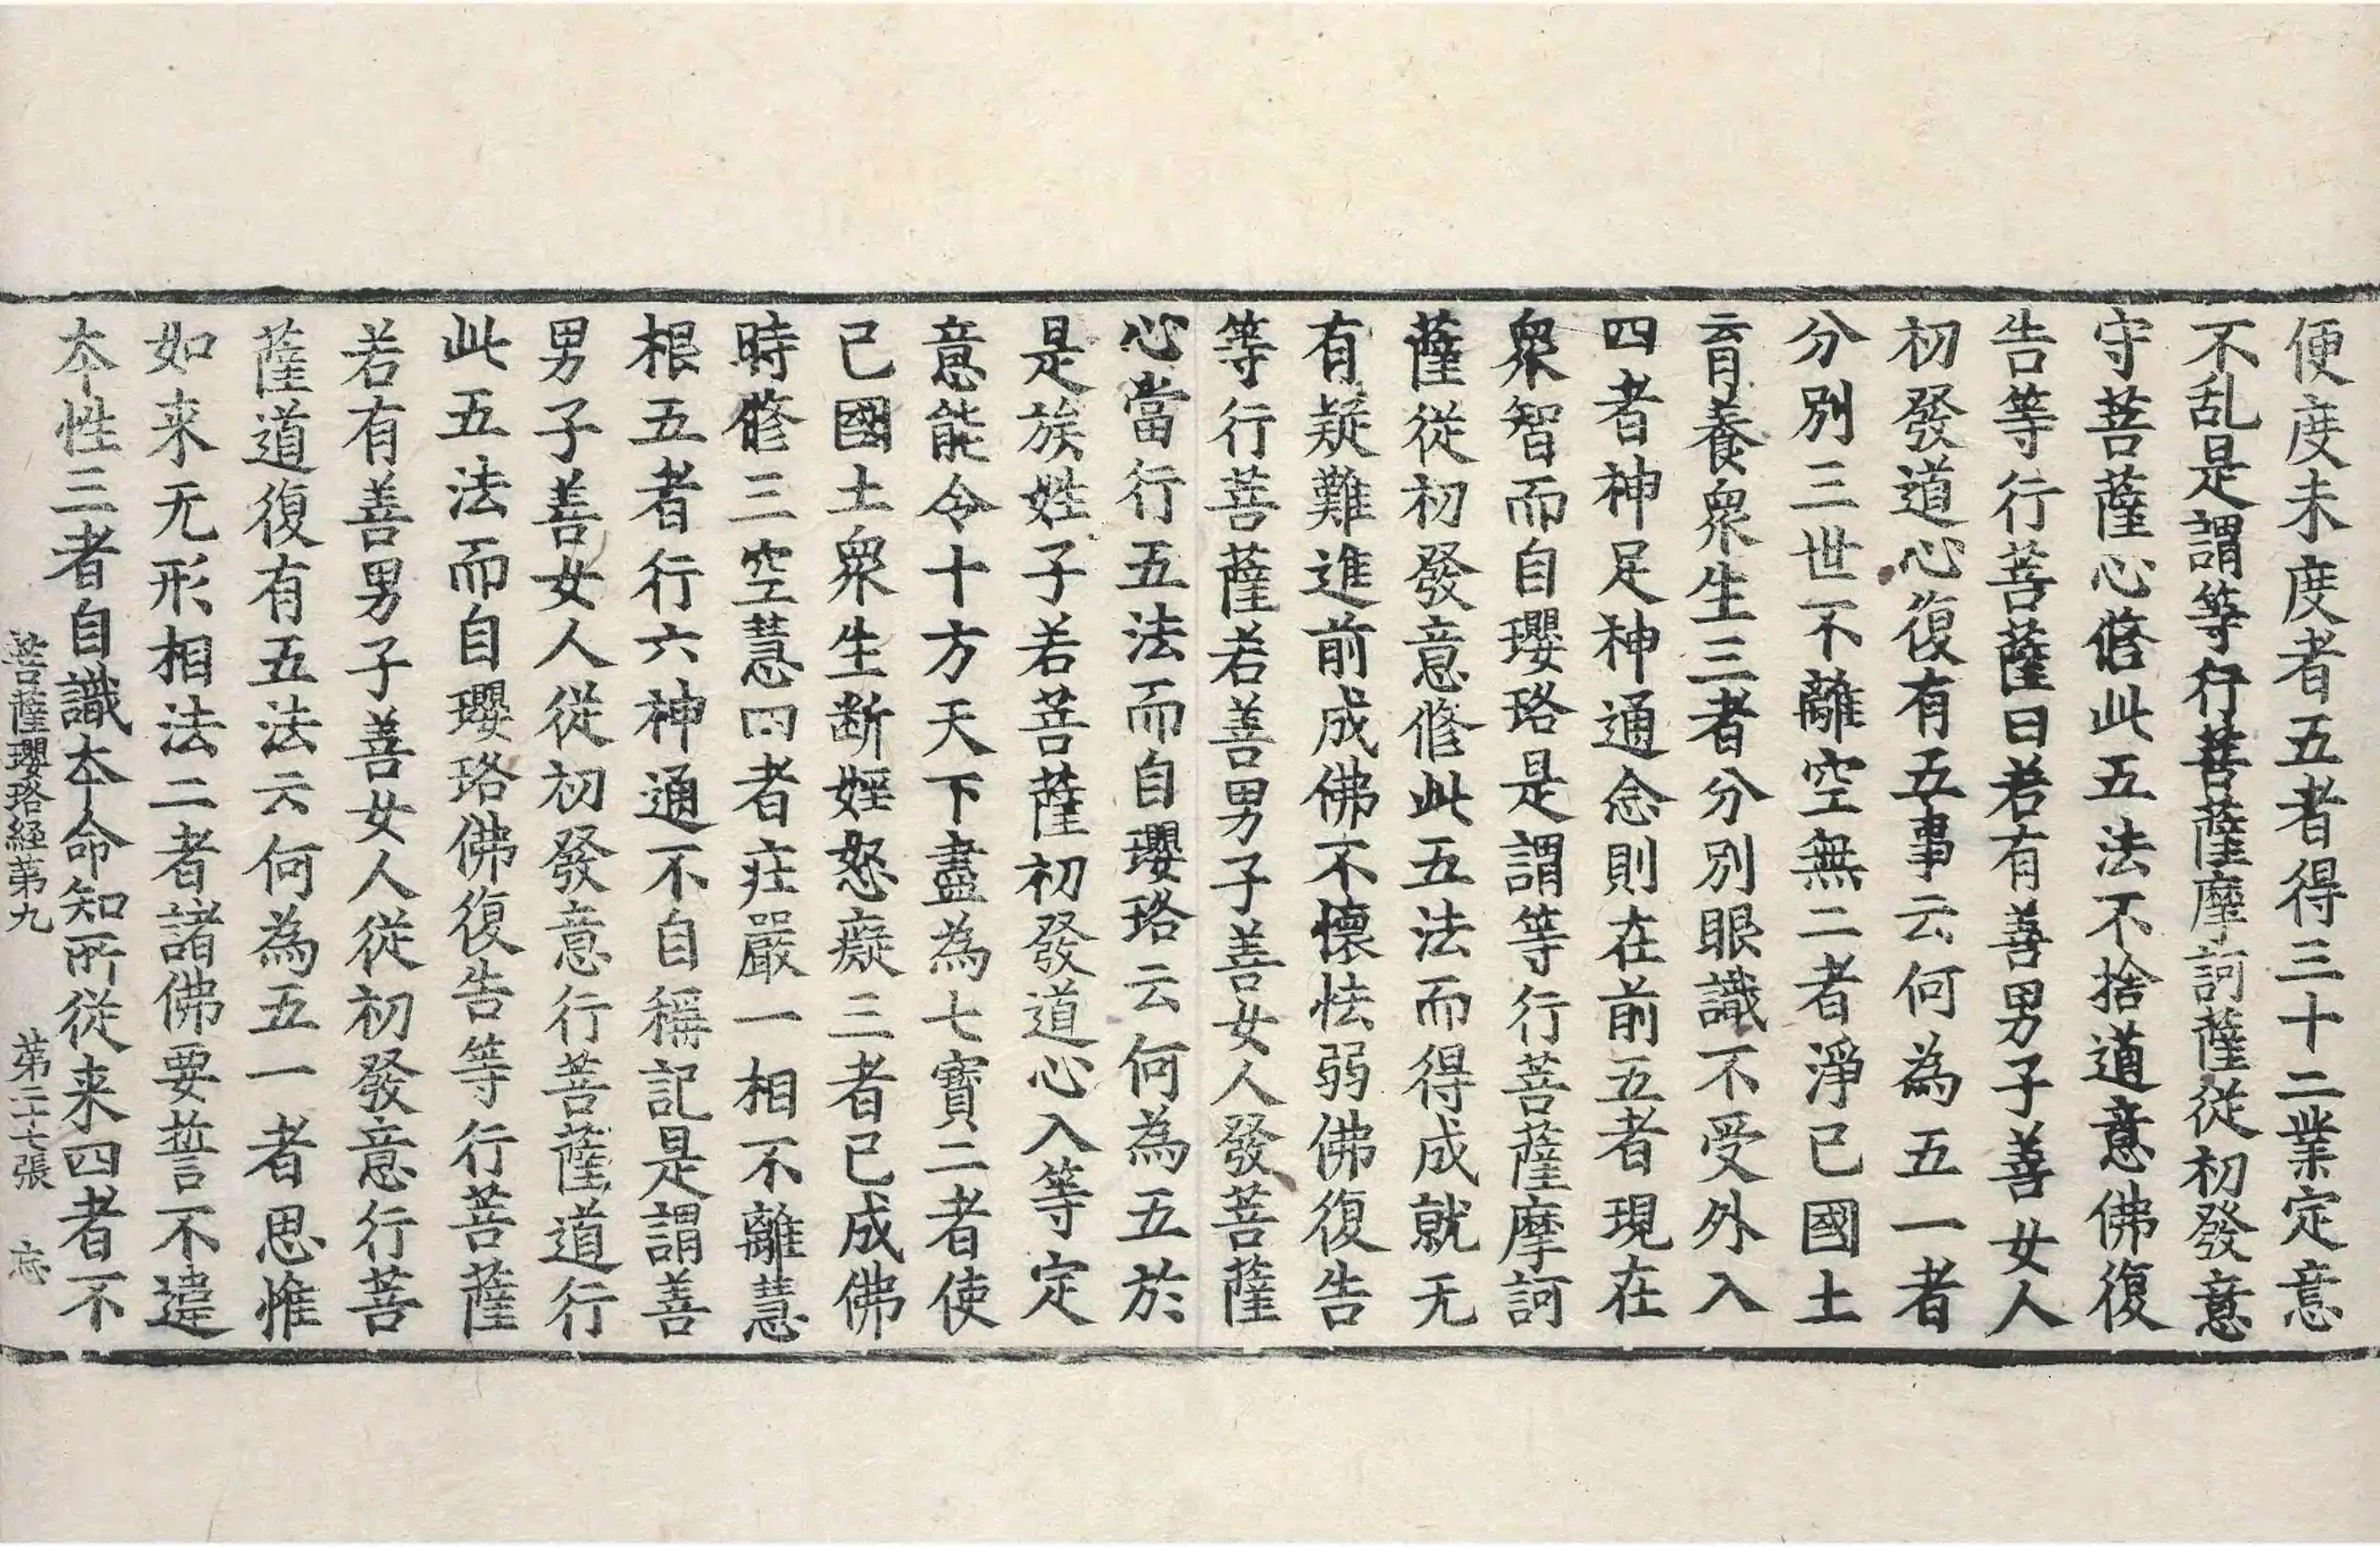 便度未度者五者得三十二業定意
不乱是謂等行菩薩摩訶薩從初發意
守菩薩心修此五法不捨道意佛復
告等行菩薩曰若有善男子善女人
初發道心復有五事云何為五一者
分別三世不離空無二者淨已國土
育養衆生三者分別眼識不受外入
四者神足神通念則在前五者現在
衆智而自瓔珞是謂等行菩薩摩訶
薩從初發意修此五法而得成就无
有疑難進前成佛不懷怯弱佛復告
等行菩薩若善男子善女人發菩薩
心當行五法而自瓔珞云何為五於
是族姓子若菩薩初發道心入等定
意能令十方天下盡為七寶二者使
已國土衆生断婬怒癡三者已成佛
時修三空慧四者庄嚴一相不離慧
根五者行六神通不自稱記是謂善
男子善女人從初發意行菩薩道行
此五法而自瓔珞佛復告等行菩薩
若有善男子善女人從初發意行菩
薩道復有五法云何為五一者思惟
如来无形相法二者諸佛要誓不違
本性三者自識本命知所從来四者不
菩薩瓔珞經第九 第二十七張 忘